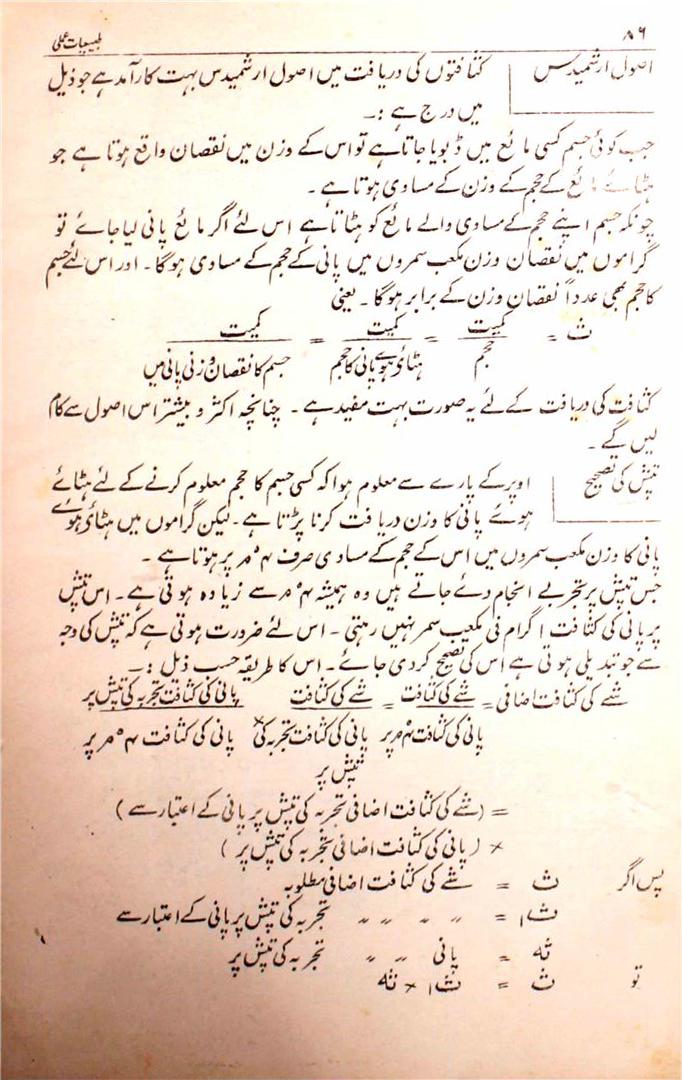 ۸۶
طبیعیات عملی
اصول ارشمیدس
کثافتوں کی دریافت میں اصول ارشمیدس بہت کارآمد ہے جو ذیل
میں درج ہے :۔
جب کوئی جسم کسی مائع میں ڈبویا جاتا ہے تو اس کے وزن میں نقصان واقع ہوتا ہے جو
ہٹائے مائع کے حجم کے وزن کے مساوی ہوتا ہے ۔
چونکہ جسم اپنے حجم کے مساوی والے مائع کو ہٹاتا ہے اس لئے اگر مائع پانی لیا جائے تو
گراموں میں نقصان وزن مکعب سمروں میں پانی کے حجم کے مساوی ہوگا ۔ اور اس لئے جسم
کا حجم بھی عدداً نقصان وزن کے برابر ہوگا ۔ یعنی
ث = کمیت = کمیت = کمیت
حجم ہٹائے ہوئے پانی کا حجم جسم کا نقصان وزنی پانی میں
کثافت کی دریافت کے لئے یہ صورت بہت مفید ہے ۔ چنانچہ اکثر و بیشتر اس اصول سے کام
لیں گے ۔
تپش کی تصحیح
اوپر کے پارے سے معلوم ہوا کہ کسی جسم کا حجم معلوم کرنے کے لئے ہٹائے
ہوئے پانی کا وزن دریافت کرنا پڑتا ہے ۔ لیکن گراموں میں ہٹائے ہوئے
پانی کا وزن مکعب سمروں میں اس کے حجم کے مساوی صرف ۴°م پر ہوتا ہے ۔
جس تپش پر تجربے انجام دئے جاتے ہیں وہ ہمیشہ ۴°م سے زیادہ ہوتی ہے ۔ اس تپش
پر پانی کی کثافت ۱ گرام فی مکعب سمر نہیں رہتی ۔ اس لئے ضرورت ہوتی ہے کہ تپش کی وجہ
سے جو تبدیلی ہوتی ہے اس کی تصحیح کردی جائے ۔ اس کا طریقہ حسب ذیل :۔
شے کی کثافت اضافی = شے کی کثافت = شے کی کثافت پانی کی کثافت تجربہ کی تپش پر
پانی کی کثافت ۴°م پر پانی کی کثافت تجربہ کی × پانی کی کثافت ۴°م پر
تپش پر
= (شے کی کثافت اضافی تجربہ کی تپش پر پانی کے اعتبار سے )
× (پانی کی کثافت اضافی تجربہ کی تپش پر )
پس اگر ث = شے کی کثافت اضافی مطلوبہ
ث۱ = 〃 〃 〃 〃 تجربہ کی تپش پر پانی کے اعتبار سے
ثہ = پانی 〃 〃 تجربہ کی تپش پر
تو ث = ث۱ × ثہ